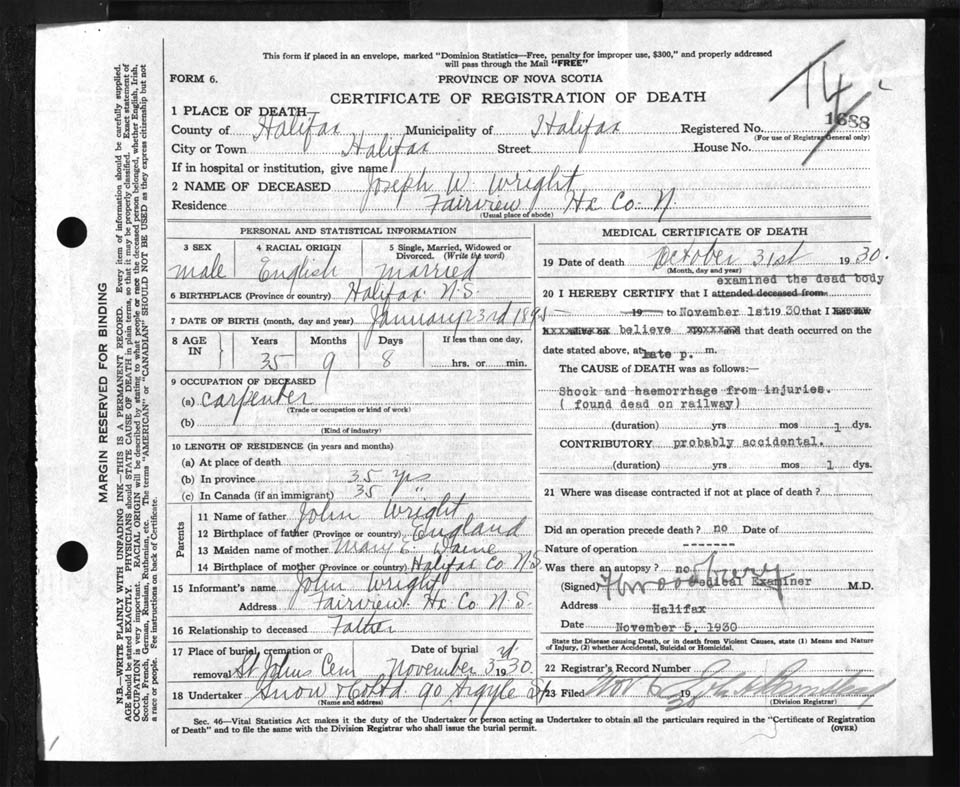 This form if placed in an envelope, marked "Dominion Statistics—Free, penalty for improper use, $300," and properly addressed
will pass through the Mail "FREE"
FORM 6.
PROVINCE OF NOVA SCOTIA
T4
CERTIFICATE OF REGISTRATION OF DEATH
1 PLACE OF DEATH—
County of Halifax Municipality of Halifax Registered No. 1688
(For use of Registrar General only)
City or Town Halifax Street House No.
If in hospital or institution, give name
2 NAME OF DECEASED Joseph W. Wright
Residence Fairview Hx Co. N.
(Usual place of abode)
PERSONAL AND STATISTICAL INFORMATION
3 SEX 4 RACIAL ORIGIN 5 Single, Married, Widowed or Divorced. (Write the word)
male English married
6 BIRTHPLACE (Province or country) Halifax N.S.
7 DATE OF BIRTH (month, day and year) January 23rd 1895
8 AGE IN Years Months Days If less than one day,
35 9 8 hrs. or min.
9 OCCUPATION OF DECEASED
(a) carpenter
(Trade or occupation or kind of work)
(b)
(Kind of industry)
10 LENGTH OF RESIDENCE (in years and months)
(a) At place of death
(b) In province 35 yrs
(c) In Canada (if an immigrant) 35 "
Parents
11 Name of father John Wright
12 Birthplace of father (Province or country) England
13 Maiden name of mother Mary E.
14 Birthplace of mother (Province or country) Halifax Co N.S.
15 Informant's name John Wright
Address Fairview Hx Co N.S.
16 Relationship to deceased Father
17 Place of burial, cremation or removal Date of burial
St Johns Cem November 3rd 1930
18 Undertaker Snow & Co Ltd. 90 Argyle St
(Name and address)
MEDICAL CERTIFICATE OF DEATH
19 Date of death October 31st 1930.
(Month, day and year)
examined the dead body
20 I HEREBY CERTIFY that I attended deceased from
19 to November 1st 1930 that I
believe that death occurred on the
date stated above, at late p. m.
The CAUSE of DEATH was as follows:—
Shock and haemorrhage from injuries.
( found dead on railway)
(duration) yrs mos 1 dys.
CONTRIBUTORY probably accidental.
(duration) yrs mos 1 dys.
21 Where was disease contracted if not at place of death?
Did an operation precede death? no Date of
Nature of operation -------
Was there an autopsy? no
(Signed) Medical Examiner M.D.
Address Halifax
Date November 5, 1930
State the Disease causing Death, or in death from Violent Causes, state (1) Means and Nature
of Injury, (2) whether Accidental, Suicidal or Homicidal.
22 Registrar's Record Number
23 Filed Nov 6 1930
(Division Registrar)
Sec. 46—Vital Statistics Act makes it the duty of the Undertaker or person acting as Undertaker to obtain all the particulars required in the "Certificate of Registration
of Death" and to file the same with the Division Registrar who shall issue the burial permit.
(OVER)
MARGIN RESERVED FOR BINDING
N.B.—WRITE PLAINLY WITH UNFADING INK—THIS IS A PERMANENT RECORD. Every item of information should be carefully supplied.
AGE should be stated EXACTLY. PHYSICIANS should STATE CAUSE OF DEATH in plain terms, so that it may be properly classified. Exact statement of
OCCUPATION is very important. RACIAL ORIGIN will be described by stating to what people or race the deceased person belonged, whether English, Irish,
Scotch, French, German, Russian, Ruthenian, etc. The terms "AMERICAN" or "CANADIAN" SHOULD NOT BE USED as they express citizenship but not
a race or people. See instructions on back of Certificate.